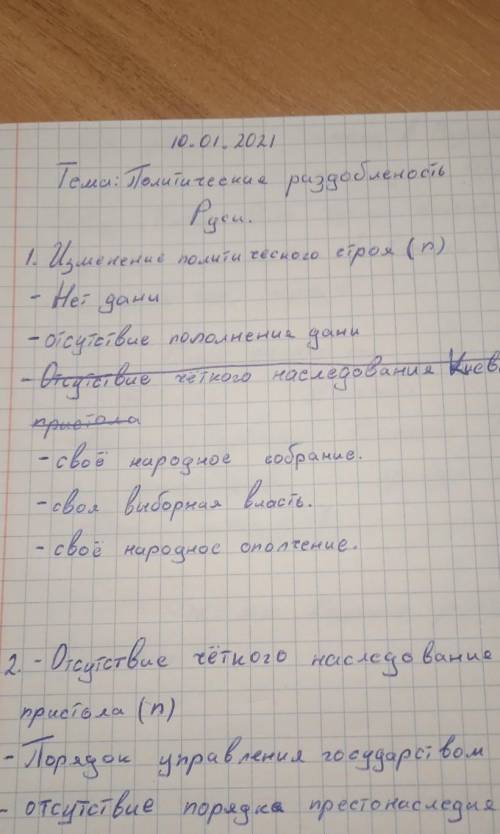 10.01.2021
Тема: Политические раздобленость
Руси.
1. Изменение политического строя (п)
- Нет дани
- отсутствие пополнение дани
- Отсутствие чёткого наследования Киев.
пристола
- своё народное собрание.
- своя выборная власть.
- своё народнос ополчение.
2. - Отсутствие чёткого наследование
пристола (п)
- Порядок управления государством
- отсутствие порядка престонаследия